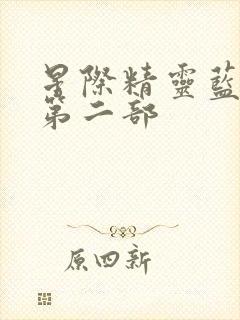 星際精靈藍
第二部
原四新